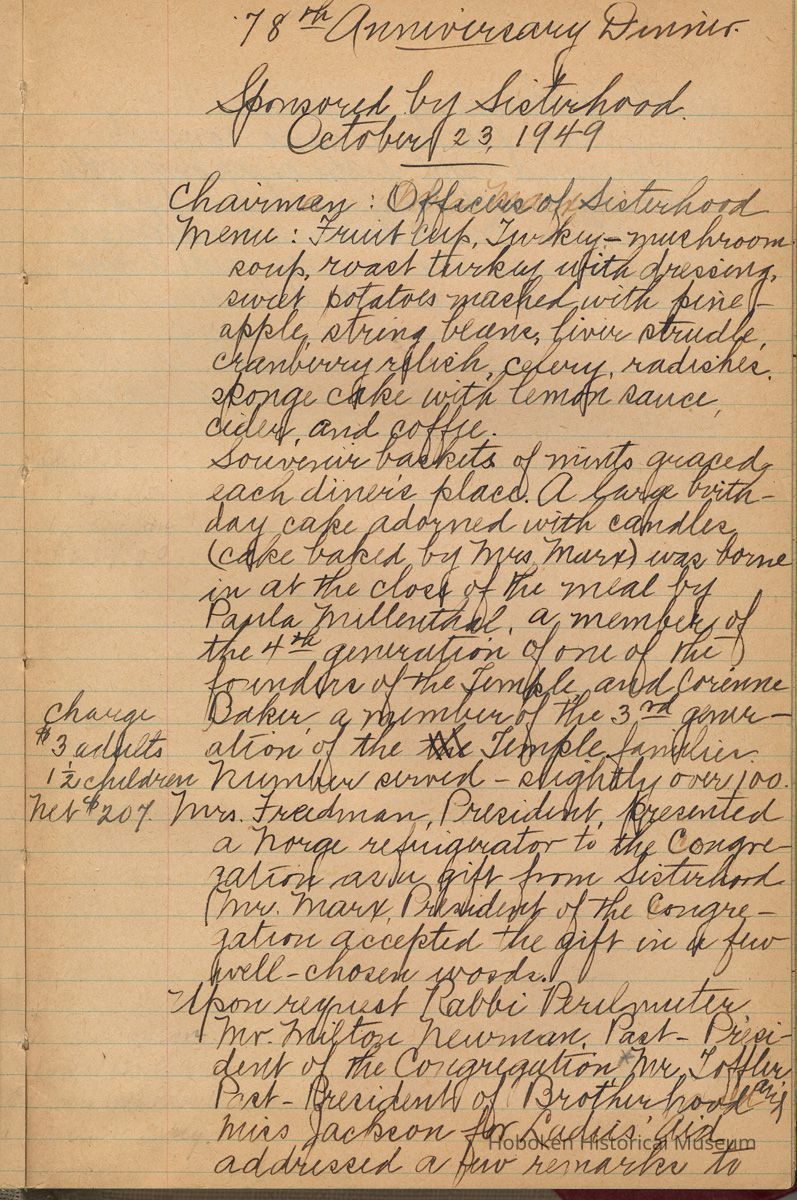 78th Anniversary Dinner.
Sponsored by Sisterhood.
October 23, 1949
Chairmen : Officers of Sisterhood
Menu : Fruit cup, Turkey-mushroom
soup, roast turkey with dressing,
sweet potatoes mashed with pine-
apple, string beans, liver strudle,
cranberry relish, celery, radishes,
sponge cake with lemon sauce,
cider, and coffee.
Souvenir baskets of mints graced
each diner's place. A large birth-
day cake adorned with candles
(cake baked by Mrs. Marx) was borne
in at the close of the meal by
Paula Millenthal, a member of
the 4th generation of one of the
founders of the Temple, and Corinne
Baker, a member of the 3rd gener-
ation of the Temple families.
Number served - slightly over 100.
charge
$3 adults
1½ children
Net $207.
Mrs. Freedman, President, presented
a Norge refrigerator to the Congre-
gation as a gift from Sisterhood
(Mr. Marx, President of the Congre-
gation accepted the gift in a few
well-chosen words.
Upon request Rabbi Perlmuter
Mr. Milton Newman, Past-Presi-
dent of the Congregation Mr. Toffler
Past-President of Brotherhood and
Miss Jackson for Ladies' Aid
addressed a few remarks to
Hoboken Historical Museum